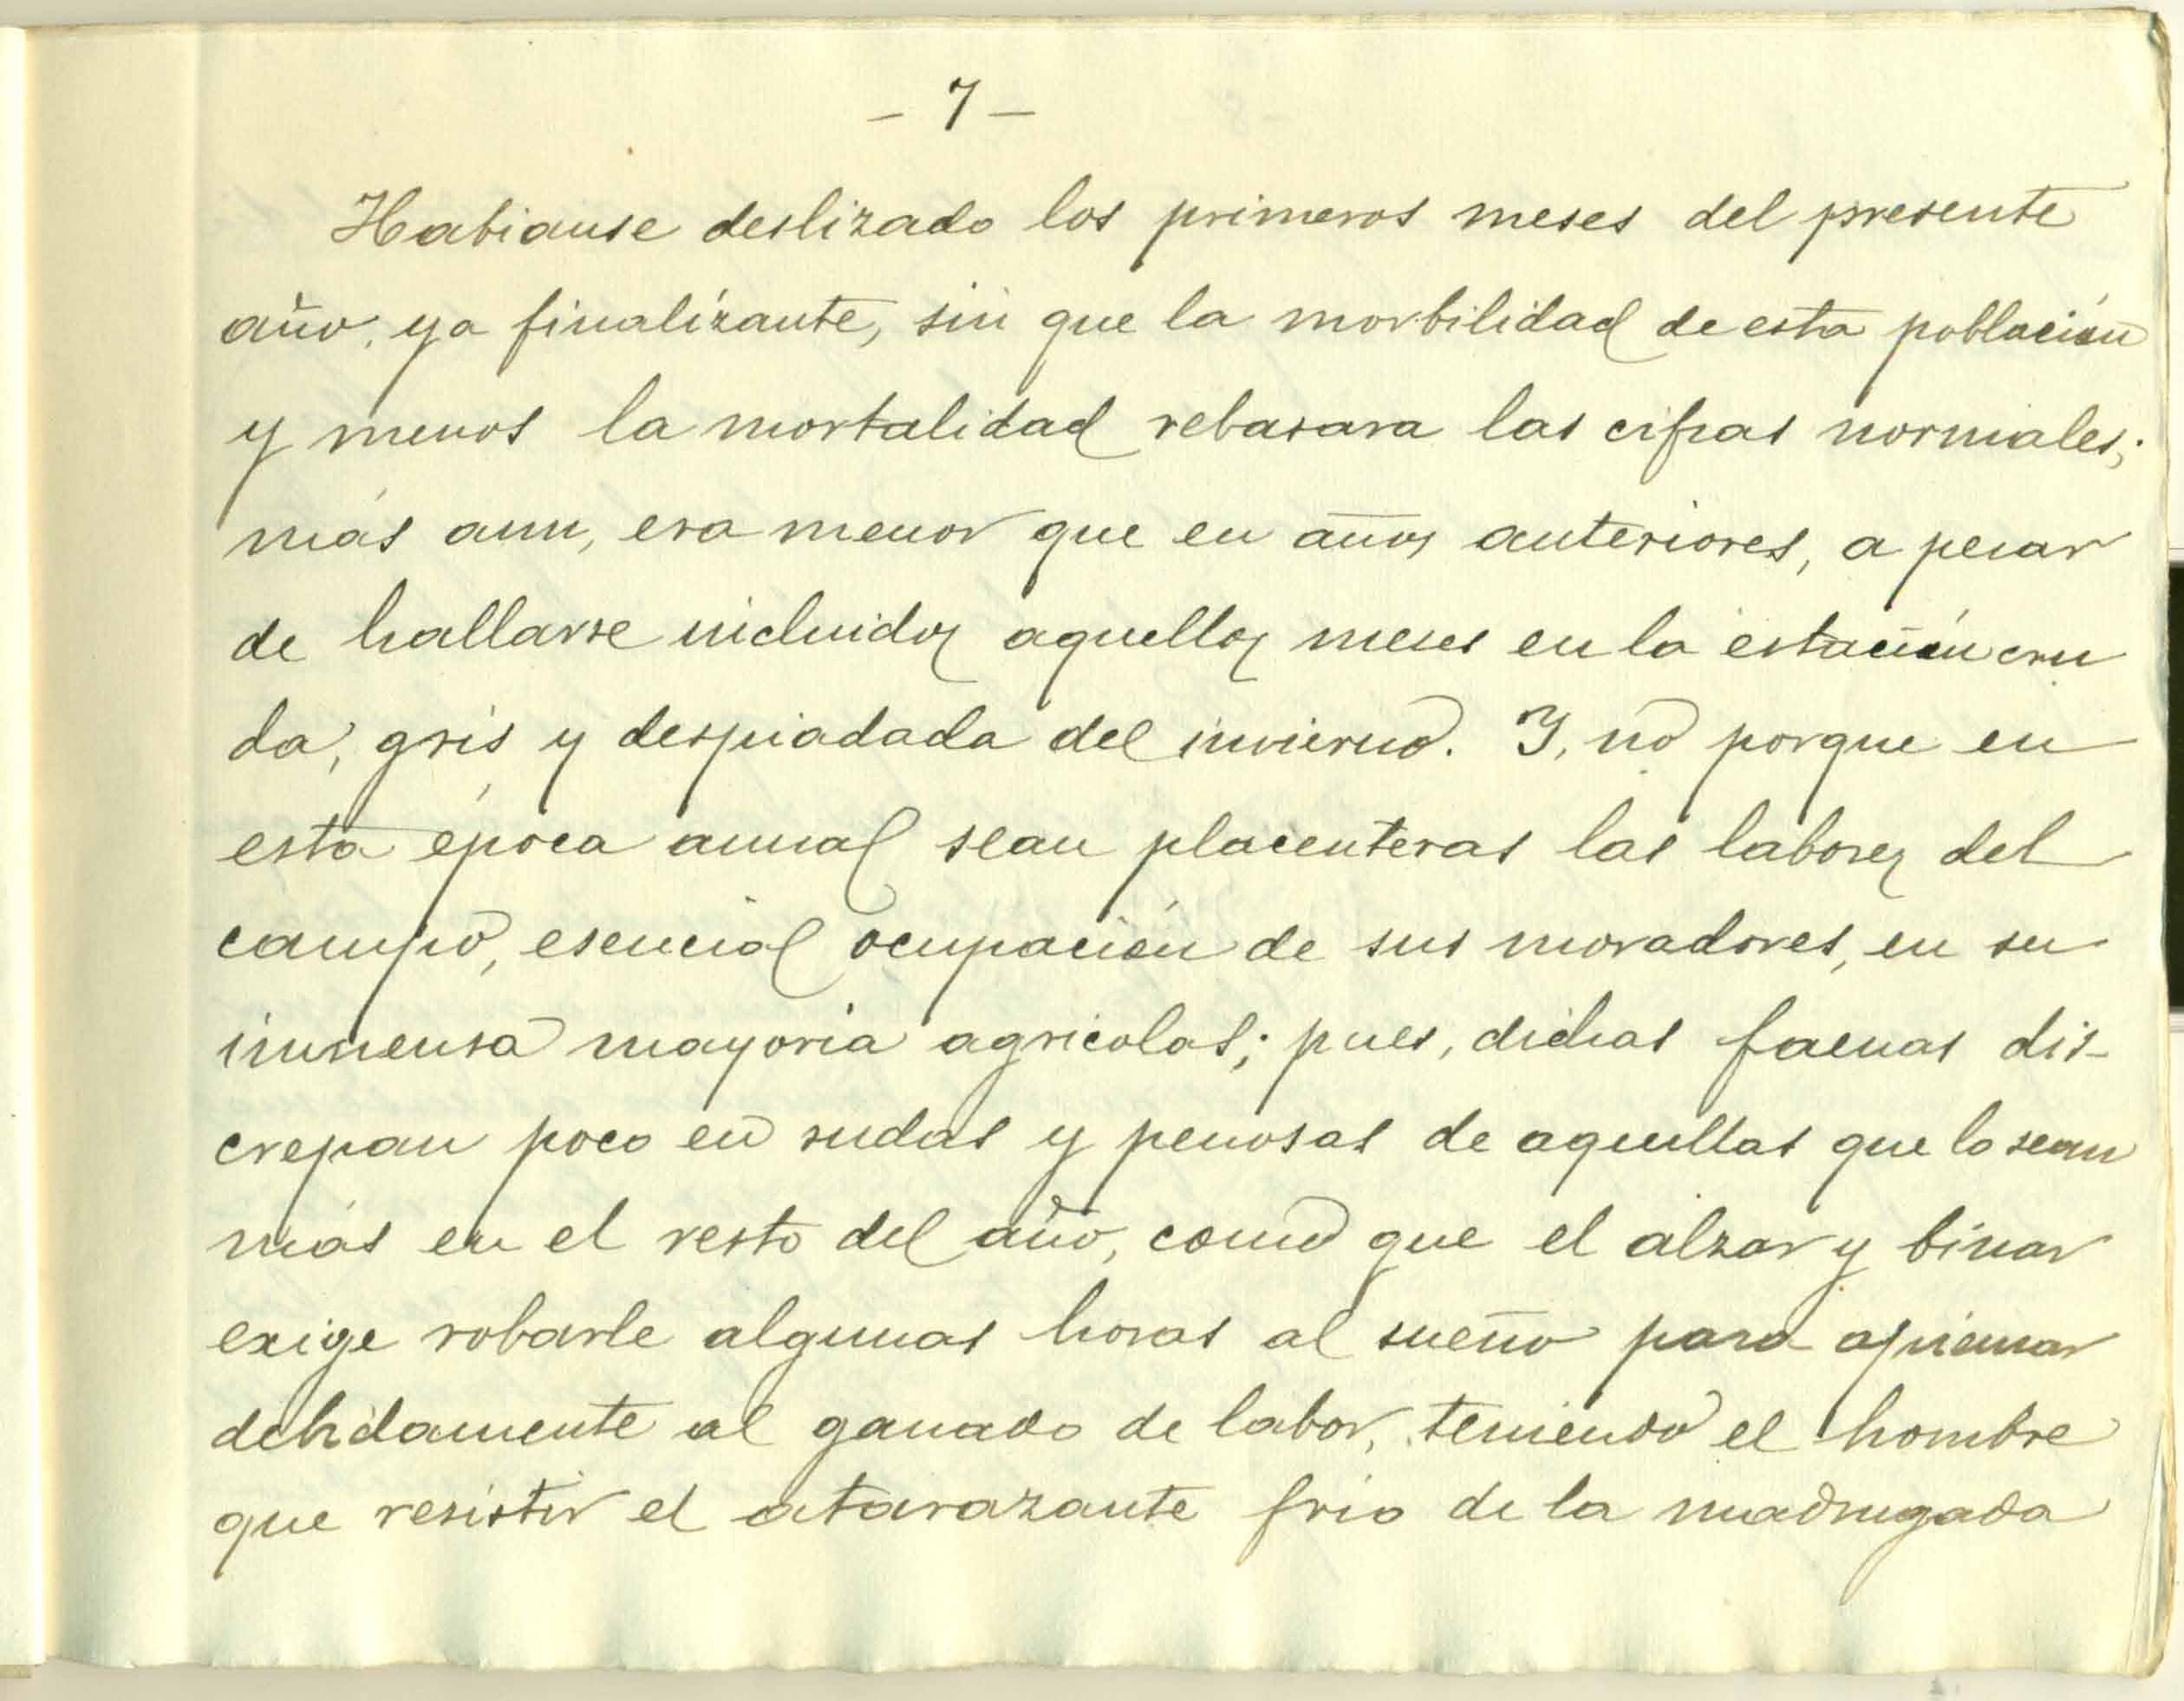 - 7 -
Habianse deslizado los primeros meses del presente
año, ya finalizante, sin que la morbilidad de esta población
y menos la mortalidad rebasara las cifras normales;
más aun, era menor que en años anteriores, a pesar
de hallarse incluidos aquellos meses en la estación cru
da, gris y despiadada del invierno. Y, no porque en
esta época annal sean placenteras las labores del
campo, esencial ocupación de sus moradores, en su
inmensa mayoria agricolas; pues, dichas faenas dis-
crepan poco en rudas y penosas de aquellas que lo sean
más en el resto del año, como que el alzar y binar
exige robarle algunas horas al sueño para apiensar
debidamente al ganado de labor, teniendo el hombre
que resistir el atarazante frio de la madrugada